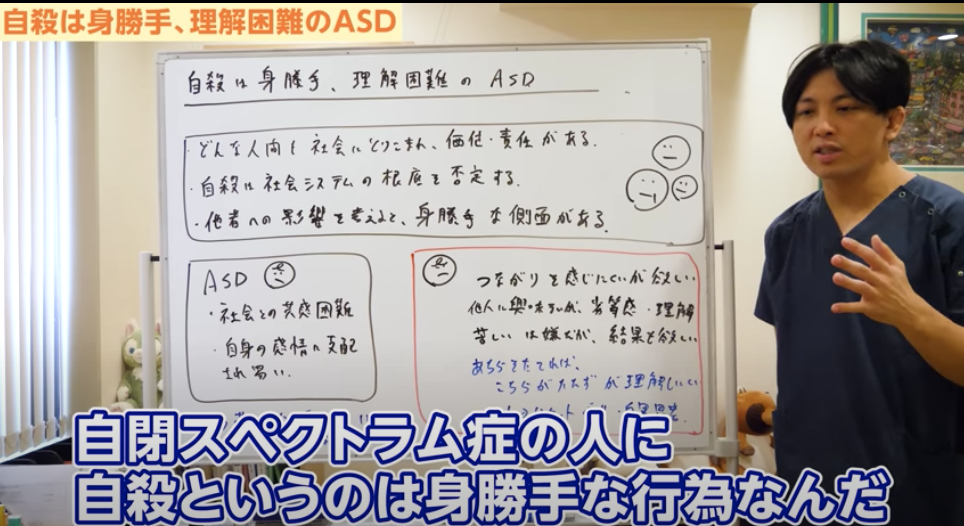 自殺は身勝手、理解困難のASD
自殺は身勝手、理解困難のASD
・どんな人間も社会にとりこまれ、価値・責任がある.
・自殺は社会システムの根底を否定する.
・他者への影響を考えると、身勝手な側面がある.
ASD
・社会との共感困難
・自身の感情に支配
され易い.
つながりを感じにくいが欲しい
他人に興味ないが、劣等感・理解
苦しいは嫌だが、結果を欲しい
あちらをたてれば、
こちらがたたずが理解しにくい
自閉スペクトラム症の人に
自殺というのは身勝手な行為なんだ